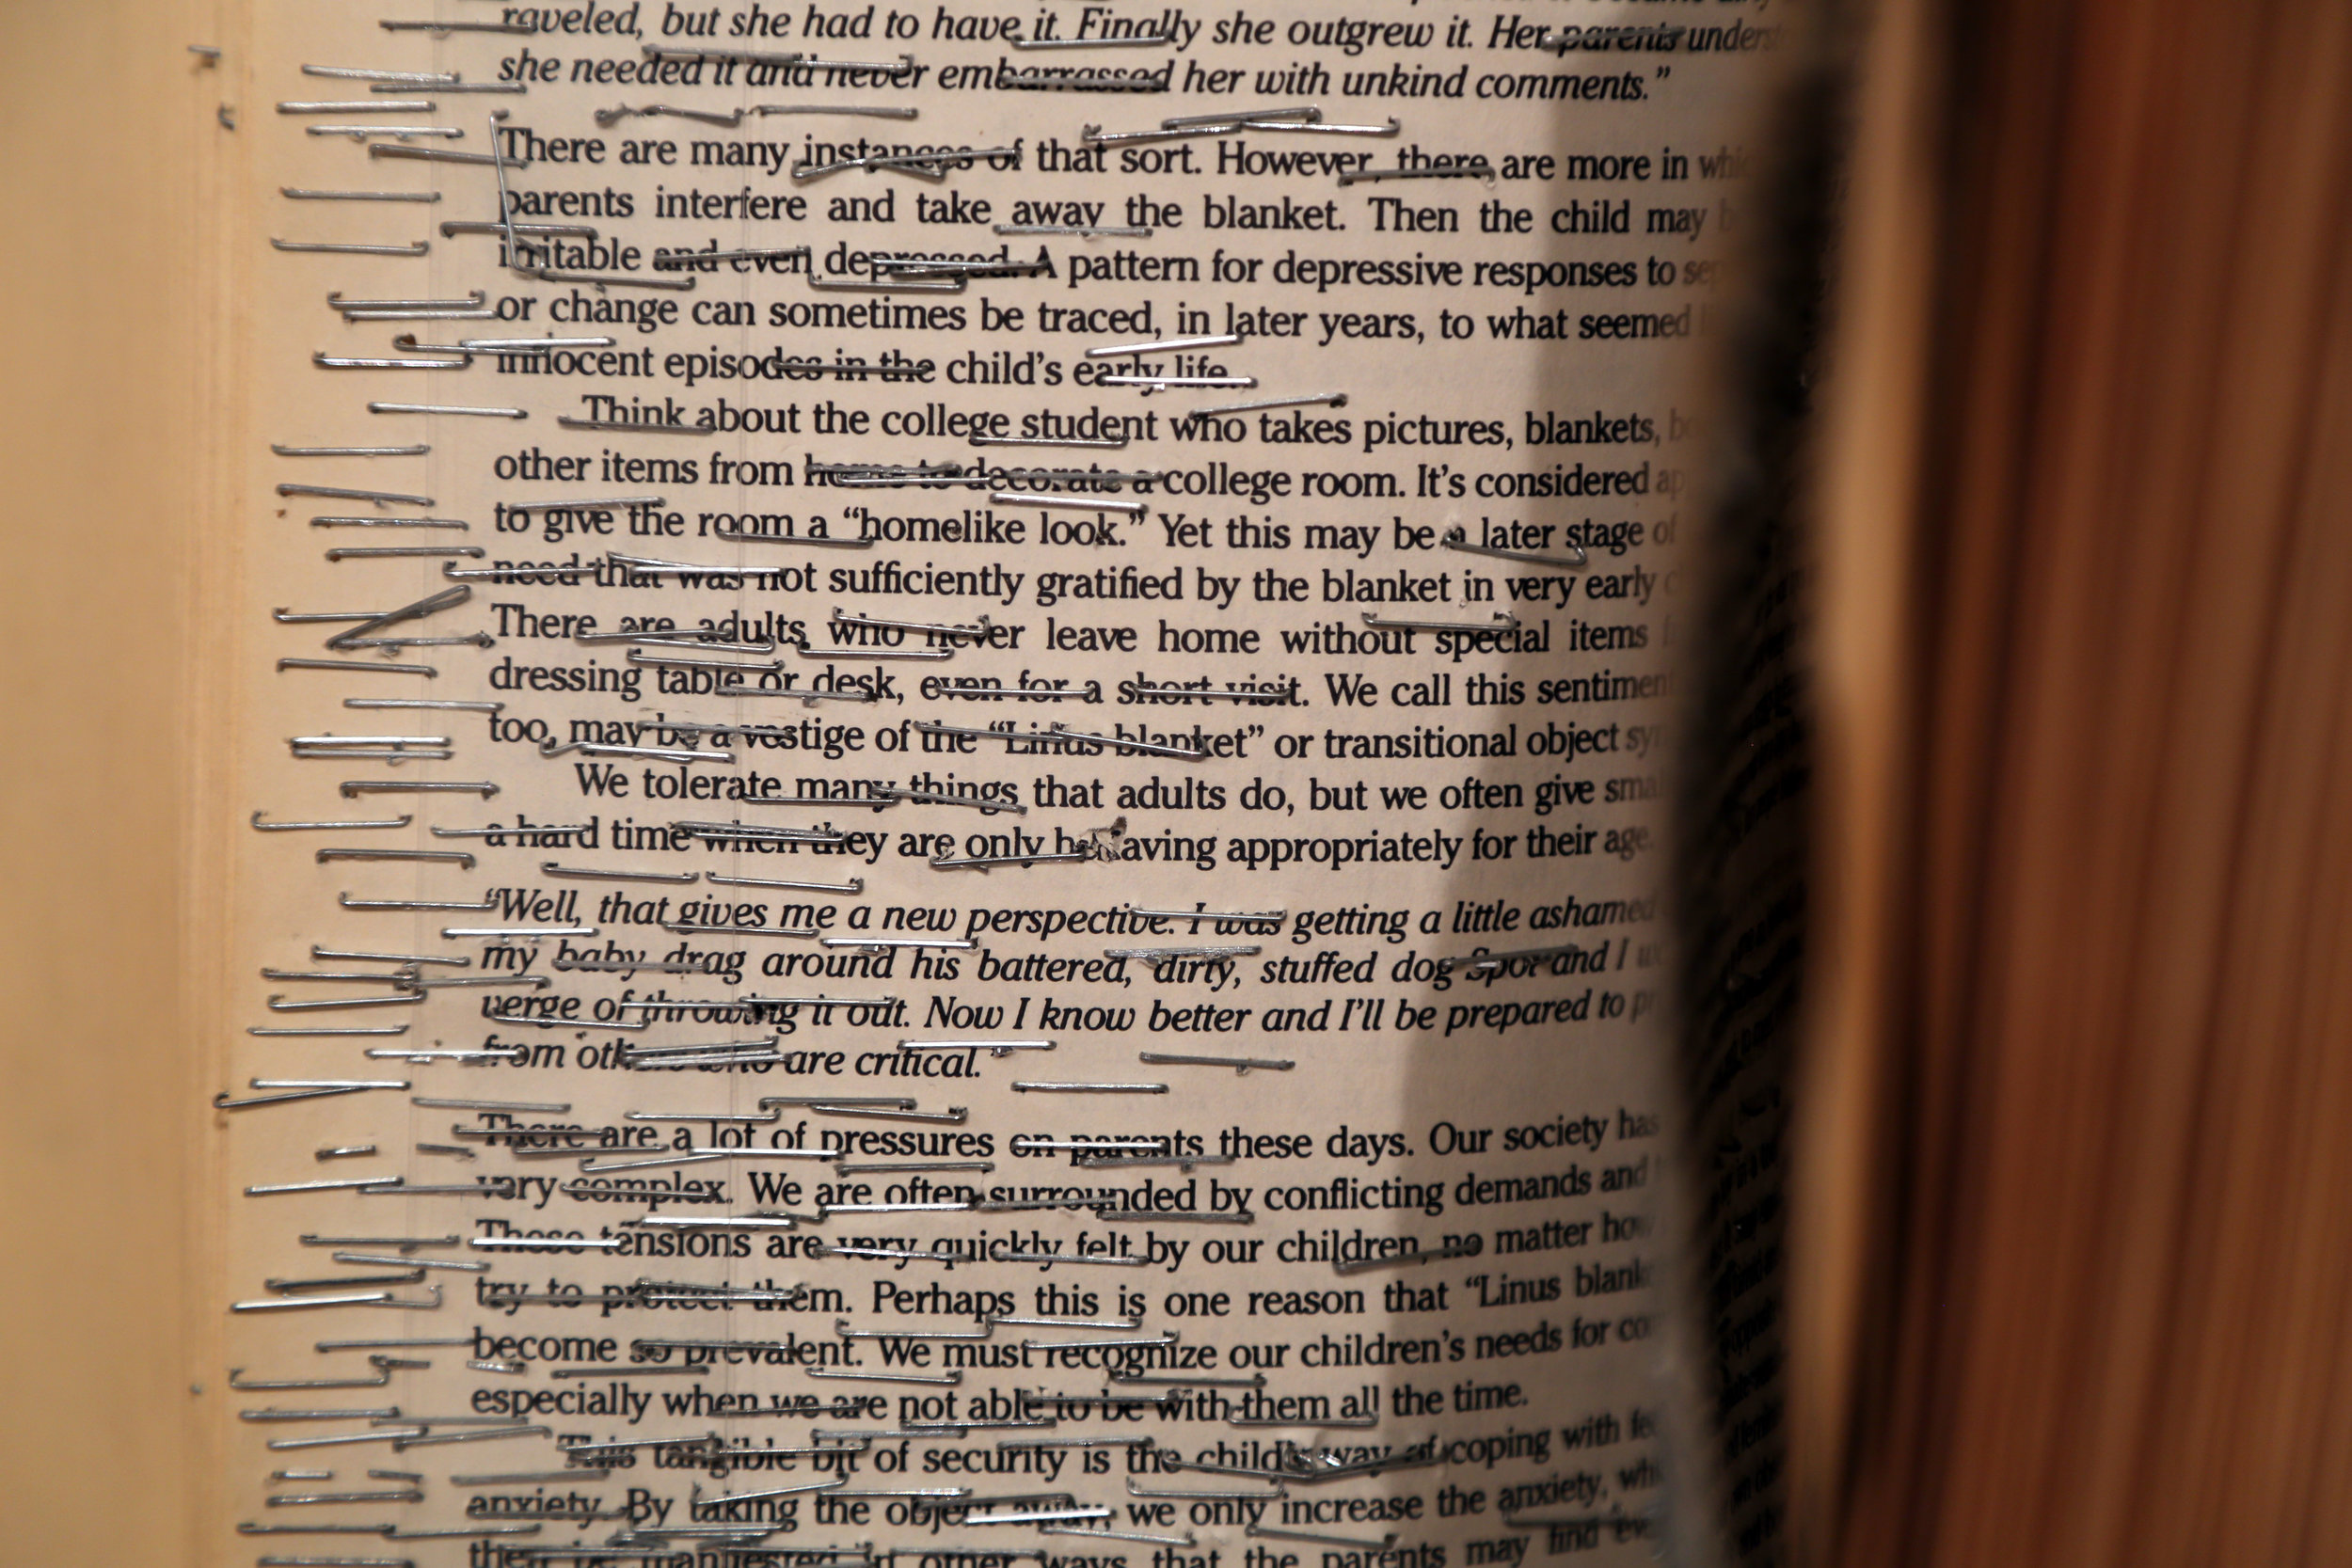 raveled, but she had to have it. Finally she outgrew it. Her parents
she needed it and never embarrassed her with unkind comments.”
There are many instances of that sort. However, there are more in
parents interfere and take away the blanket. Then the child may
irritable and even depressed. A pattern for depressive responses to
or change can sometimes be traced, in later years, to what seemed
innocent episodes in the child’s early life.
Think about the college student who takes pictures, blankets,
other items from home to decorate a college room. It’s considered
to give the room a “homelike look.” Yet this may be a later stage of
need that was not sufficiently gratified by the blanket in very early
There are adults who never leave home without special items
dressing table or desk, even for a short visit. We call this
too, may be a vestige of the “Linus blanket” or transitional object
We tolerate many things that adults do, but we often give
a hard time when they are only behaving appropriately for their age.
“Well, that gives me a new perspective. I was getting a little ashamed
my baby drag around his battered, dirty, stuffed dog Spot and I
verge of throwing it out. Now I know better and I’ll be prepared to
from others who are critical.”
There are a lot of pressures on parents these days. Our society has
very complex. We are often surrounded by conflicting demands and
These tensions are very quickly felt by our children, no matter how
try to protect them. Perhaps this is one reason that “Linus
become so prevalent. We must recognize our children’s needs for
especially when we are not able to be with them all the time.
This tangible bit of security is the child’s way of coping with
anxiety. By taking the object away, we only increase the anxiety,
then be manifested in other ways that the parents may find